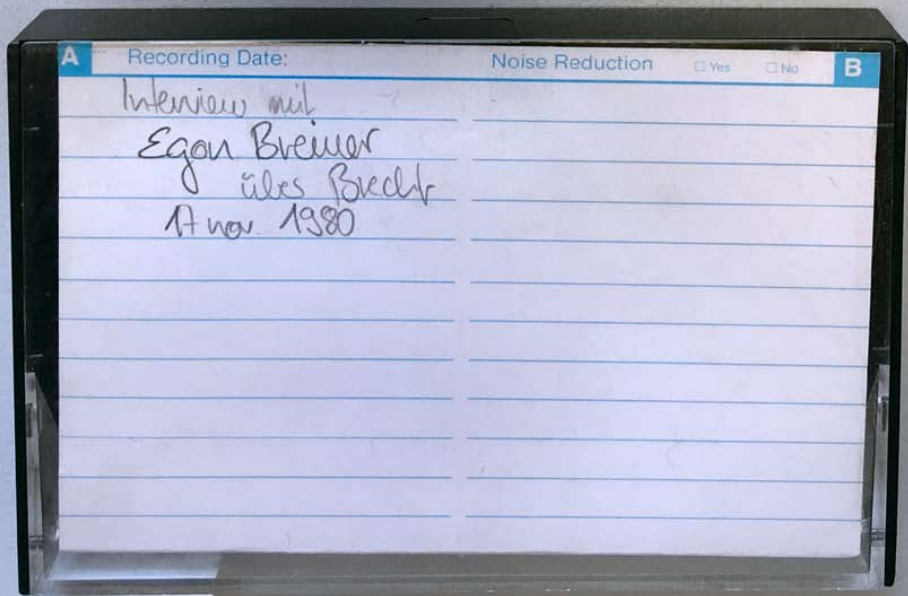 A Recording Date: Noise Reduction Yes No B
Interview mit
Egon Breiner
über Brecht
17 nov. 1980